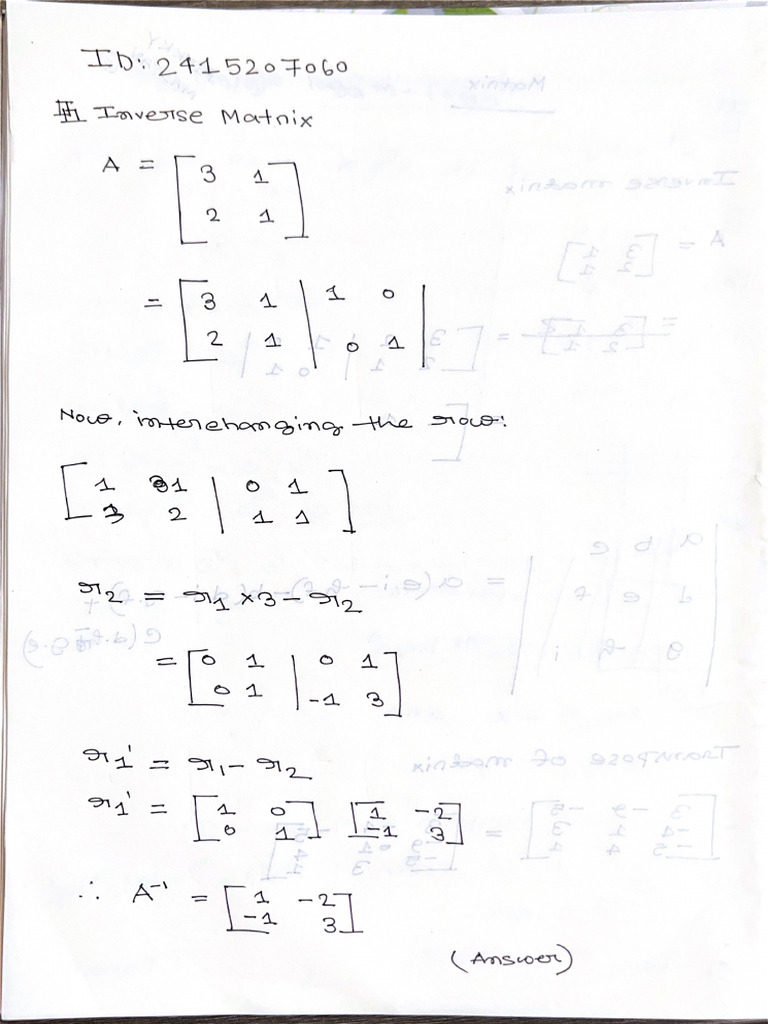 ID: 2415207060
Inverse Matrix
A = [3 1
2 1]
= [3 1 | 1 0 |
2 1 | 0 1 |
Now, interchanging the row:
[1 1 | 0 1
3 2 | 1 1]
r2 = r1 ×3 - r2
= [0 1 | 0 1
0 1 | -1 3]
r1' = r1 - r2
r1' = [1 0 [1 -2
0 1] -1 3]
∴ A⁻¹ = [1 -2
-1 3]
(Answer)